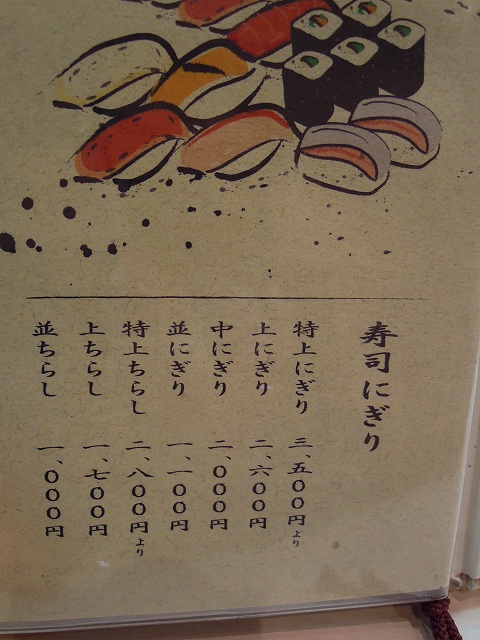 寿司にぎり
特上にぎり 三、五〇〇円より
上にぎり 二、六〇〇円
中にぎり 二、〇〇〇円
並にぎり 一、一〇〇円
特上ちらし 二、八〇〇円より
上ちらし 一、七〇〇円
並ちらし 一、〇〇〇円